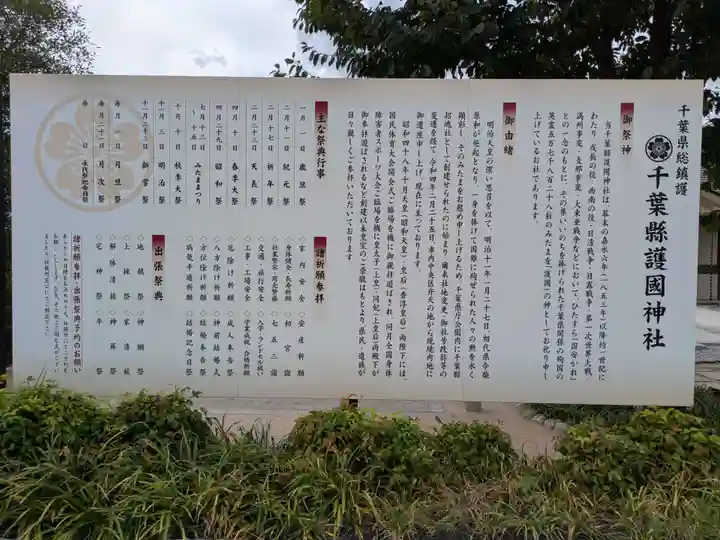 千葉県総鎮護
千葉縣護國神社
御祭神
当千葉縣護国神社は、幕末の嘉永六年（一八五三年）以降約一世紀に
わたり、戊辰の役・西南の役・日清戦争・日露戦争・第一次世界大戦・
満州事変・支那事変・大東亜戦争などにおいて、ひたすら「国安かれ」
との一念のもとに、その尊いいのちを捧げられた千葉県関係の殉国の
英霊五万七千八百二十八柱のみたまを、「護國の神」としてお祀り申し
上げているお社であります。
御由緒
明治天皇の深い思召を以て、明治十一年一月二十七日、初代県令柴
原和が発起となり、「一身を捧げて国難に殉ぜられた人々の勲を永く
顕彰し、そのみたまをお慰め申し上げるため、千葉県庁公園内に千葉縣
招魂社として創建せられたのに始まり、
変遷を経て、令和四年二月二十五日、市内中央区弁天の地から現境内地に
御遷座申し上げ、現在に至っております。
昭和四十八年十月天皇（昭和天皇）・皇后（香淳皇后）両陛下には、
国民体育大会開会式ご臨場を機に御親拝遊ばされ、同月全国身体
障害者スポーツ大会ご臨場を機に皇太子（上皇）同妃（上皇后）両殿下が
御参拝遊ばされるなど、創建以来皇室のご崇敬はもとより、県民・遺族が
日々親しくご参拝いただいております。
主な祭典行事
一月一日 歳旦祭
二月十一日 紀元祭
二月十七日 祈年祭
二月二十三日 天長祭
四月十日 春季大祭
四月二十九日 昭和祭
七月十三日
～十五日 みたままつり
十月十日 秋季大祭
十一月三日 明治祭
十一月二十三日 新嘗祭
毎月一日 月旦祭
毎月二十一日 月次祭
毎日 永代奉祀命日祭
諸祈願参拝
◇家内安全 ◇安産祈願
◇身体健全・長寿祈願 ◇初宮詣
◇社業繁栄・商売繁盛 ◇七五三詣
◇交通・旅行安全 ◇入学・ランドセル祓い
◇工事・工場安全 ◇学業成就・合格祈願
◇厄除け祈願 ◇成人奉告祭
◇八方除け祈願 ◇神前結婚式
◇方位除け祈願 ◇結婚奉告祭
◇病気平癒祈願 ◇結婚記念日祭
出張祭典
◇地鎮祭 ◇神棚祭
◇上棟祭 ◇家清祓
◇解体清祓 ◇神葬祭
◇宅神祭 ◇年祭
諸祈願参拝・出張祭典予約のお願い